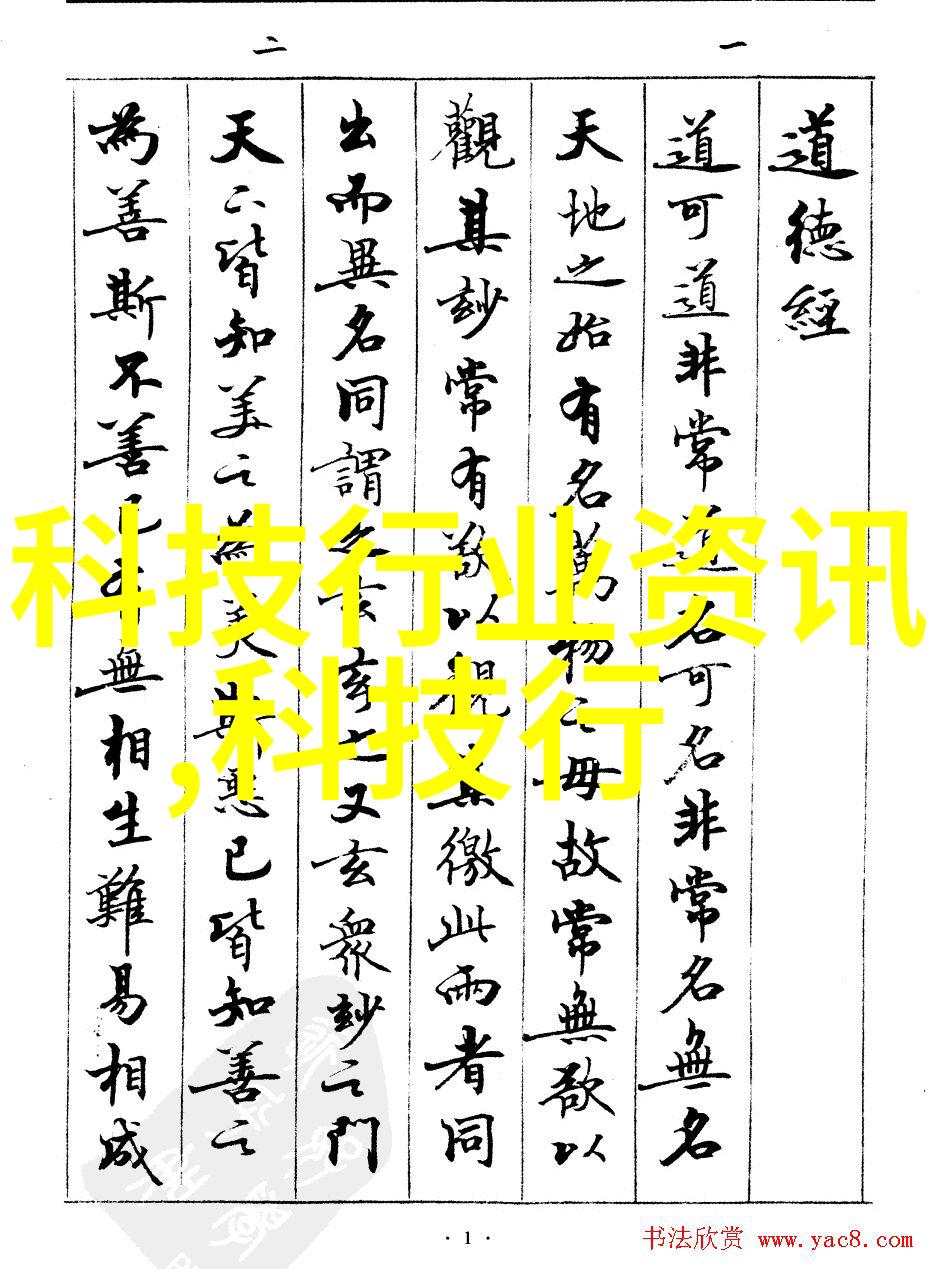 一
二
道德經
道可道非常道名可名非常名無名
天地之始有名萬物之母故常無欲以
觀其玅常有欲以觀其徼此兩者同
出而異名同謂之玄玄之又玄眾玅之門
天下皆知美之為美斯惡已皆知善之
為善斯不善已有無相生難易相成
科技行业资讯
,科技行
· 1 ·
书法欣赏 www.yac8.com